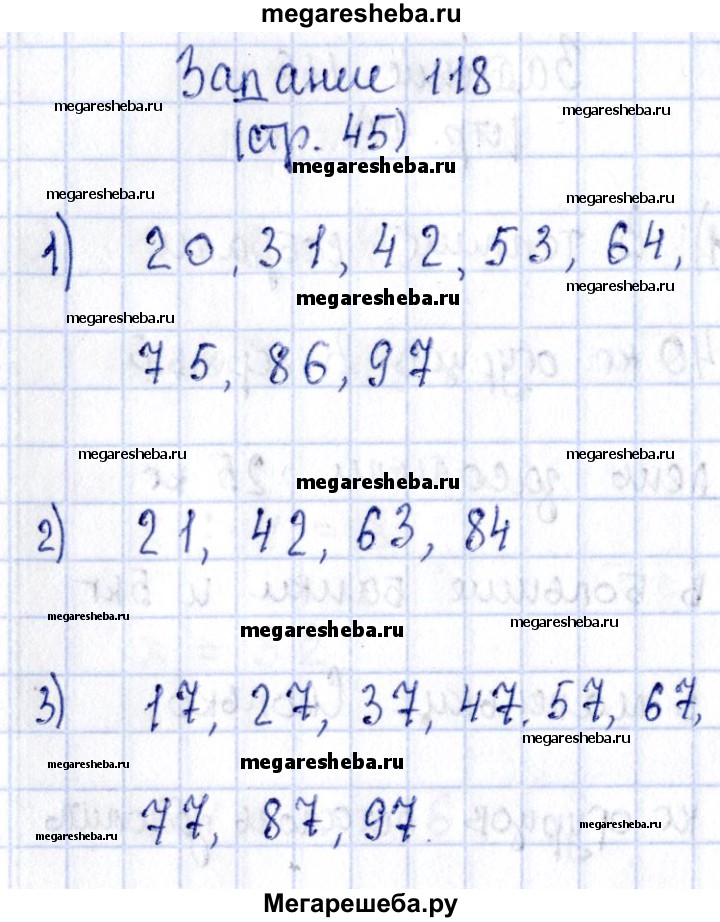 megaresheba.ru
Задание 118
megaresheba.ru megaresheba.ru
(стр. 45)
megaresheba.ru
megaresheba.ru megaresheba.ru
1) 20, 31, 42, 53, 64,
megaresheba.ru megaresheba.ru
megaresheba.ru
75, 86, 97
megaresheba.ru megaresheba.ru
megaresheba.ru
2) 21, 42, 63, 84
megaresheba.ru megaresheba.ru
megaresheba.ru
3) 17, 27, 37, 47. 57, 67,
megaresheba.ru
megaresheba.ru megaresheba.ru
77, 87, 97.
megaresheba.ru megaresheba.ru
Мегарешеба.ру